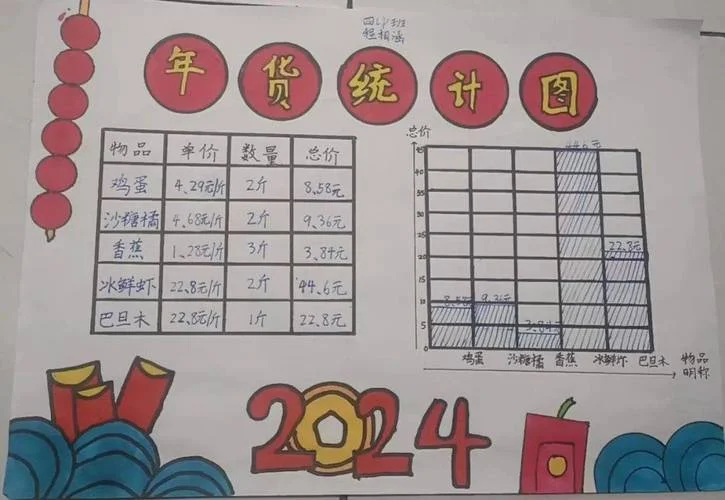 四(1)班
程相涵
年货统计图
物品 单价 数量 总价
鸡蛋 4.29元/斤 2斤 8.58元
沙糖橘 4.68元/斤 2斤 9.36元
香蕉 1.28元/斤 3斤 3.84元
冰鲜虾 22.8元/斤 2斤 44.6元
巴旦木 22.8元/斤 1斤 22.8元
总价
44.6元
45
40
35
30
25
22.8元
20
15
10
8.58元 9.36元
5
3.84元
鸡蛋 沙糖橘 香蕉 冰鲜虾 巴旦木 物品
明称
2024